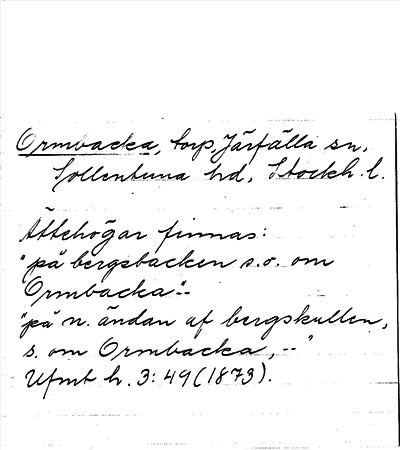 Ormbacka, torp, Järfälla sn,
Sollentuna hd, Stockh. l.
Ättehögar finnas:
"på bergsbacken s.o. om
Ormbacka".-
"på n. ändan af bergskullen,
s. om Ormbacka, --"
Ufmt h. 3: 49 (1873).